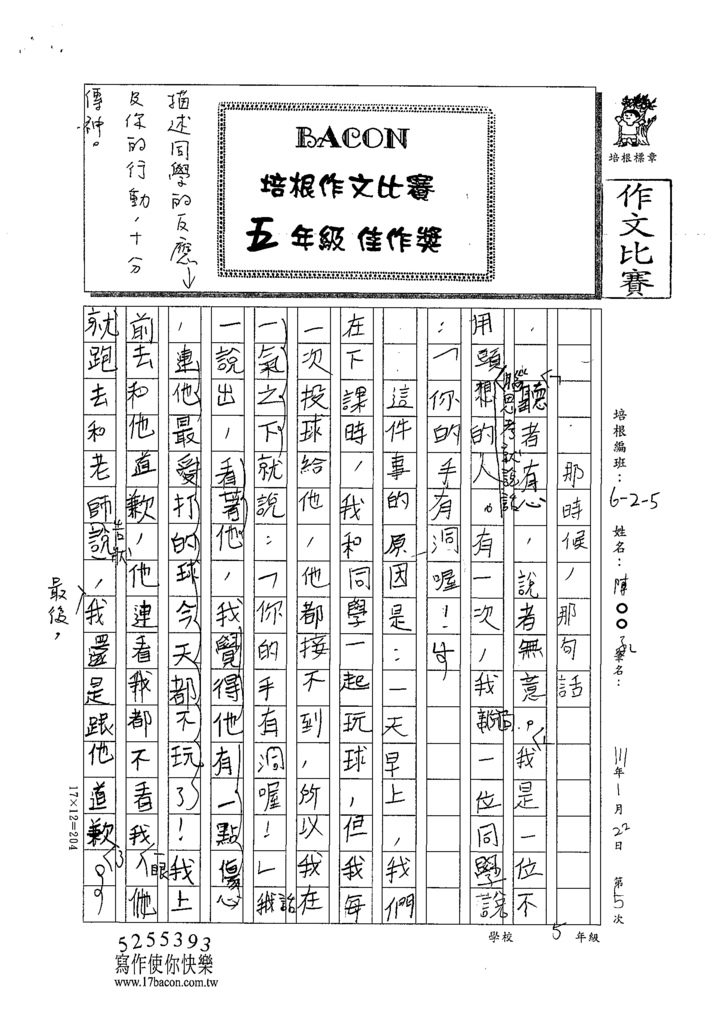 BACON
培根作文比賽
五年級 佳作獎
描述同學的反應
及你的行動，十分
傳神。
培根標章
作文比賽
培根編班：6-2-5 姓名：陳○○ 筆名： 111年1月22日 第5次
那時候，那句話
，聽者有心，說者無意。我是一位不
用頭想的人。有一次，我 一位同學說
腦思考就說話
：「你的手有洞喔！」
這件事的原因是：一天早上，我們
在下課時，我和同學一起玩球，但我每
一次投球給他，他都接不到，所以我在
一氣之下就說：「你的手有洞喔！」我話
一說出，看著他，我覺得他有一點傷心
，連他最愛打的球今天都不玩了！我上
前去和他道歉，他連看我都不看我 他
一眼
就跑去和老師說，我還是跟他道歉。
告狀
最後，
17×12=204
學校 5 年級
5255393
寫作使你快樂
www.17bacon.com.tw